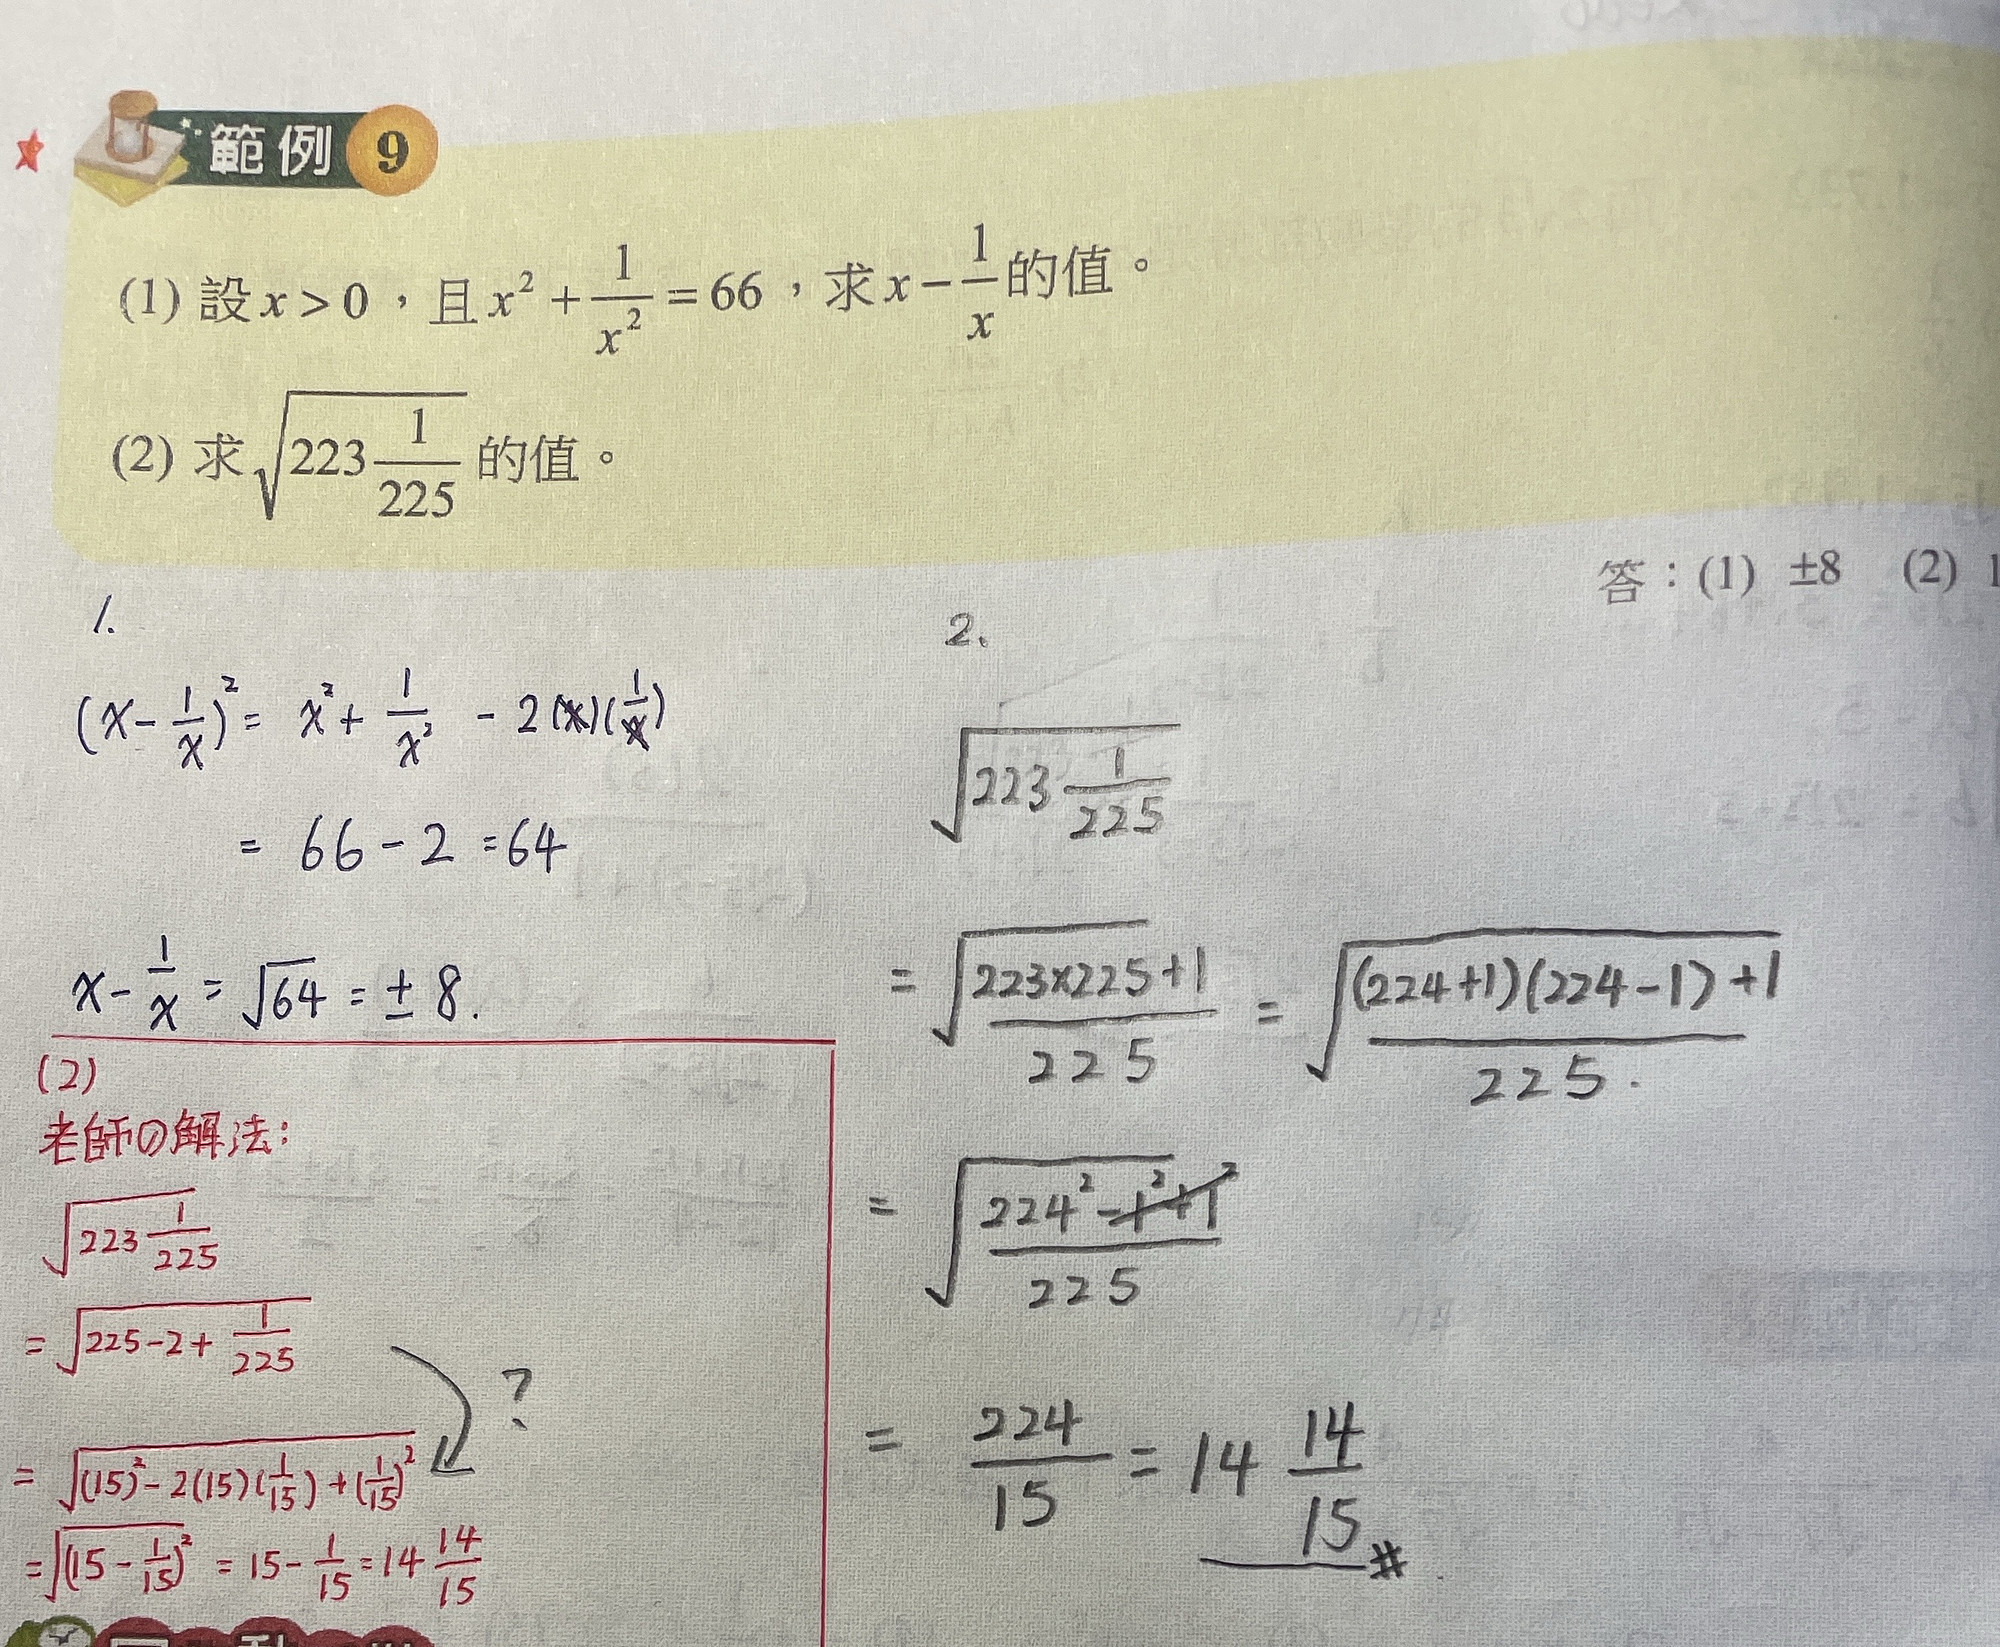 範例 9
(1) 設 x > 0，且 x² + 1/x² = 66，求 x − 1/x 的值。
(2) 求 √(223 1/225) 的值。
答：(1) ±8 (2) 1
1.
(x − 1/x)² = x² + 1/x² − 2(x)(1/x)
= 66 − 2 = 64
x − 1/x = √64 = ± 8.
(2)
老師の解法：
√(223 1/225)
= √(225 − 2 + 1/225)
?
= √((15)² − 2(15)(1/15) + (1/15)²)
= √((15 − 1/15)²) = 15 − 1/15 = 14 14/15
2.
√(223 1/225)
= √((223×225+1)/225) = √(((224+1)(224−1)+1)/225)
= √((224² − 1² + 1²)/225)
= 224/15 = 14 14/15 #